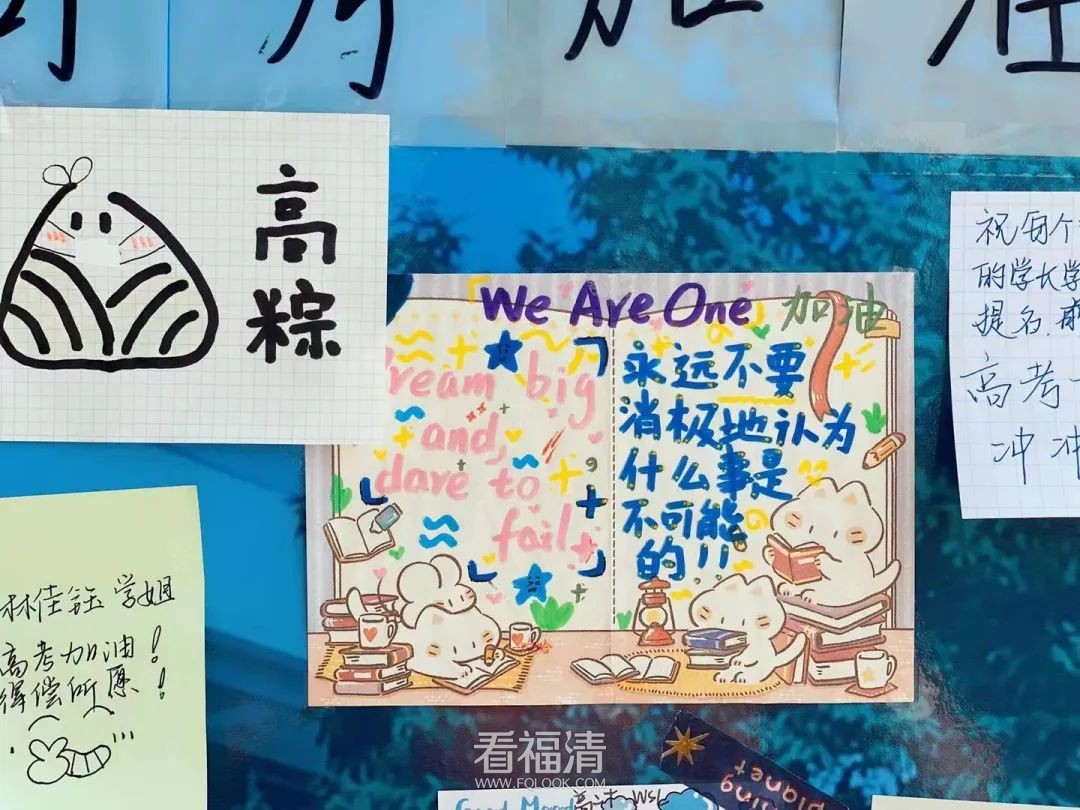 加
高
粽
We Are One 加油
Dream big
and
dare to
fail
永远不要
消极地认为
什么事是
不可能
的!!
祝每个
的学长学
提名.
高考
冲冲
林佳钰学姐
高考加油!
得偿所愿!
看福清
WWW.FQLOOK.COM
planet